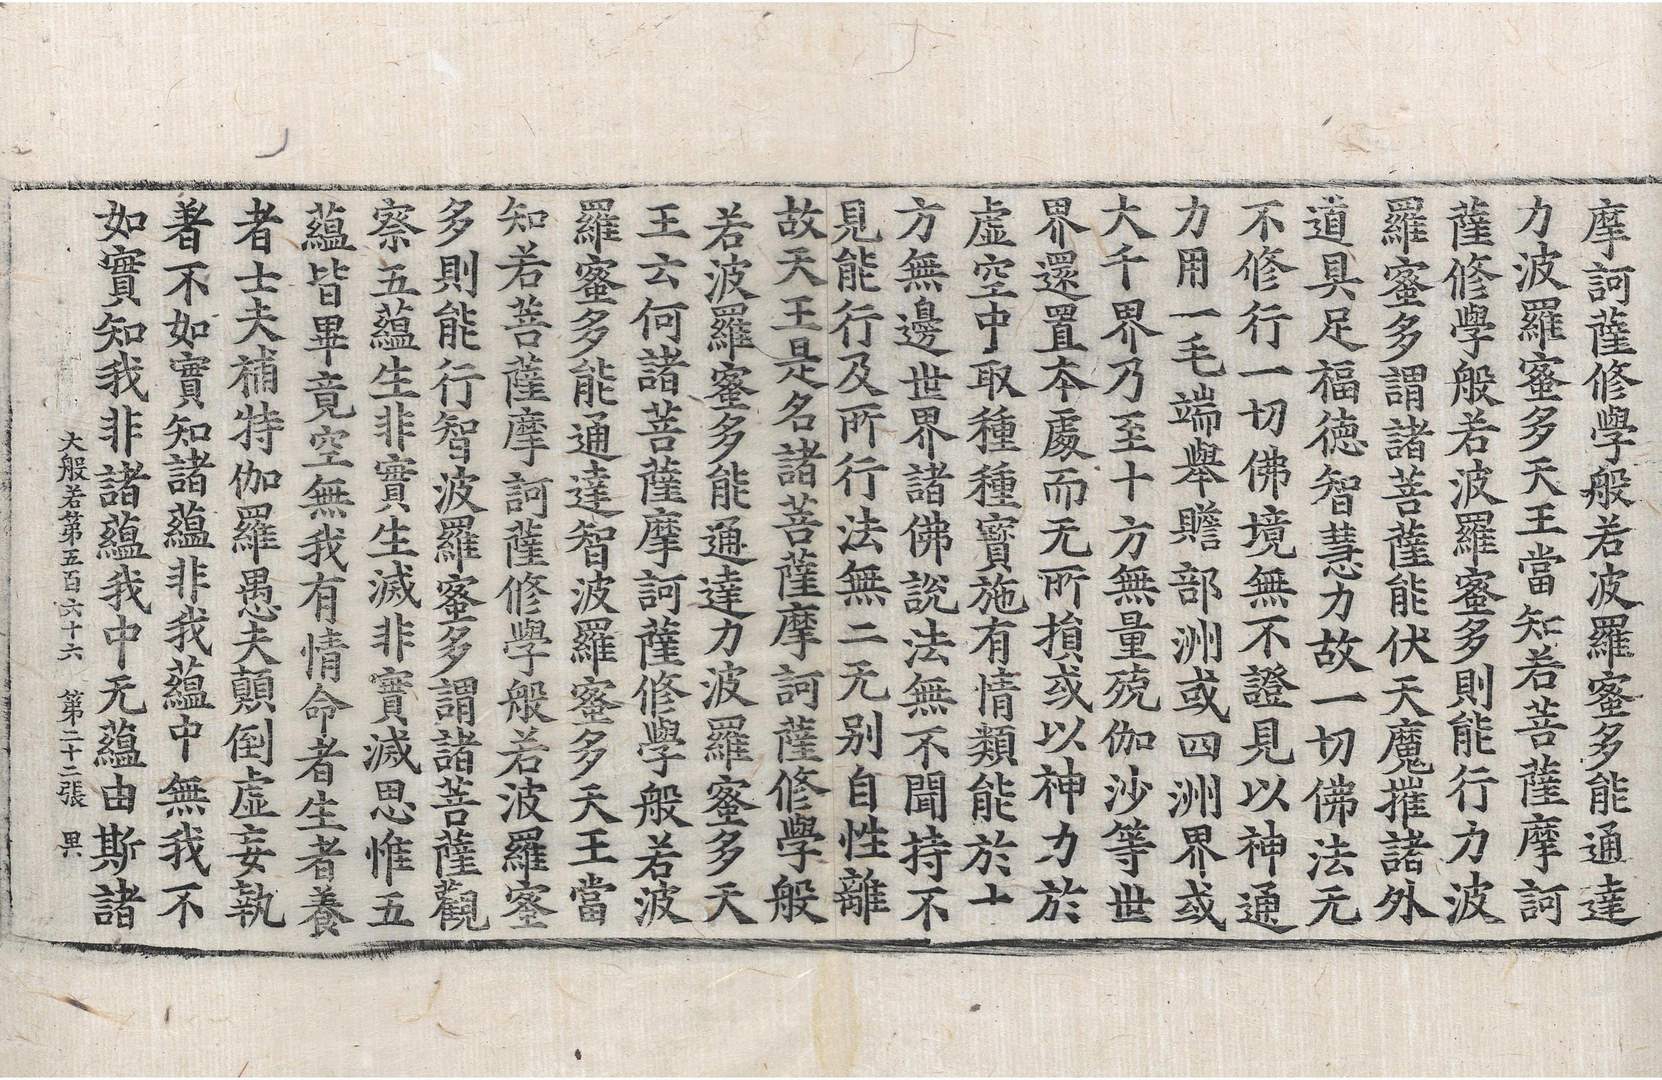 摩訶薩修學般若波羅蜜多能通達
力波羅蜜多天王當知若菩薩摩訶
薩修學般若波羅蜜多則能行力波
羅蜜多謂諸菩薩能伏天魔摧諸外
道具足福德智慧力故一切佛法无
不修行一切佛境無不證見以神通
力用一毛端舉贍部洲或四洲界或
大千界乃至十方無量殑伽沙等世
界還置本處而无所損或以神力於
虛空中取種種寶施有情類能於十
方無邊世界諸佛說法無不聞持不
見能行及所行法無二无别自性離
故天王是名諸菩薩摩訶薩修學般
若波羅蜜多能通達力波羅蜜多天
王云何諸菩薩摩訶薩修學般若波
羅蜜多能通達智波羅蜜多天王當
知若菩薩摩訶薩修學般若波羅蜜
多則能行智波羅蜜多謂諸菩薩觀
察五蘊生非實生滅非實滅思惟五
蘊皆畢竟空無我有情命者生者養
者士夫補特伽羅愚夫顛倒虛妄執
著不如實知諸蘊非我蘊中無我不
如實知我非諸蘊我中无蘊由斯諸
大般若第五百六十六　第二十二張　果